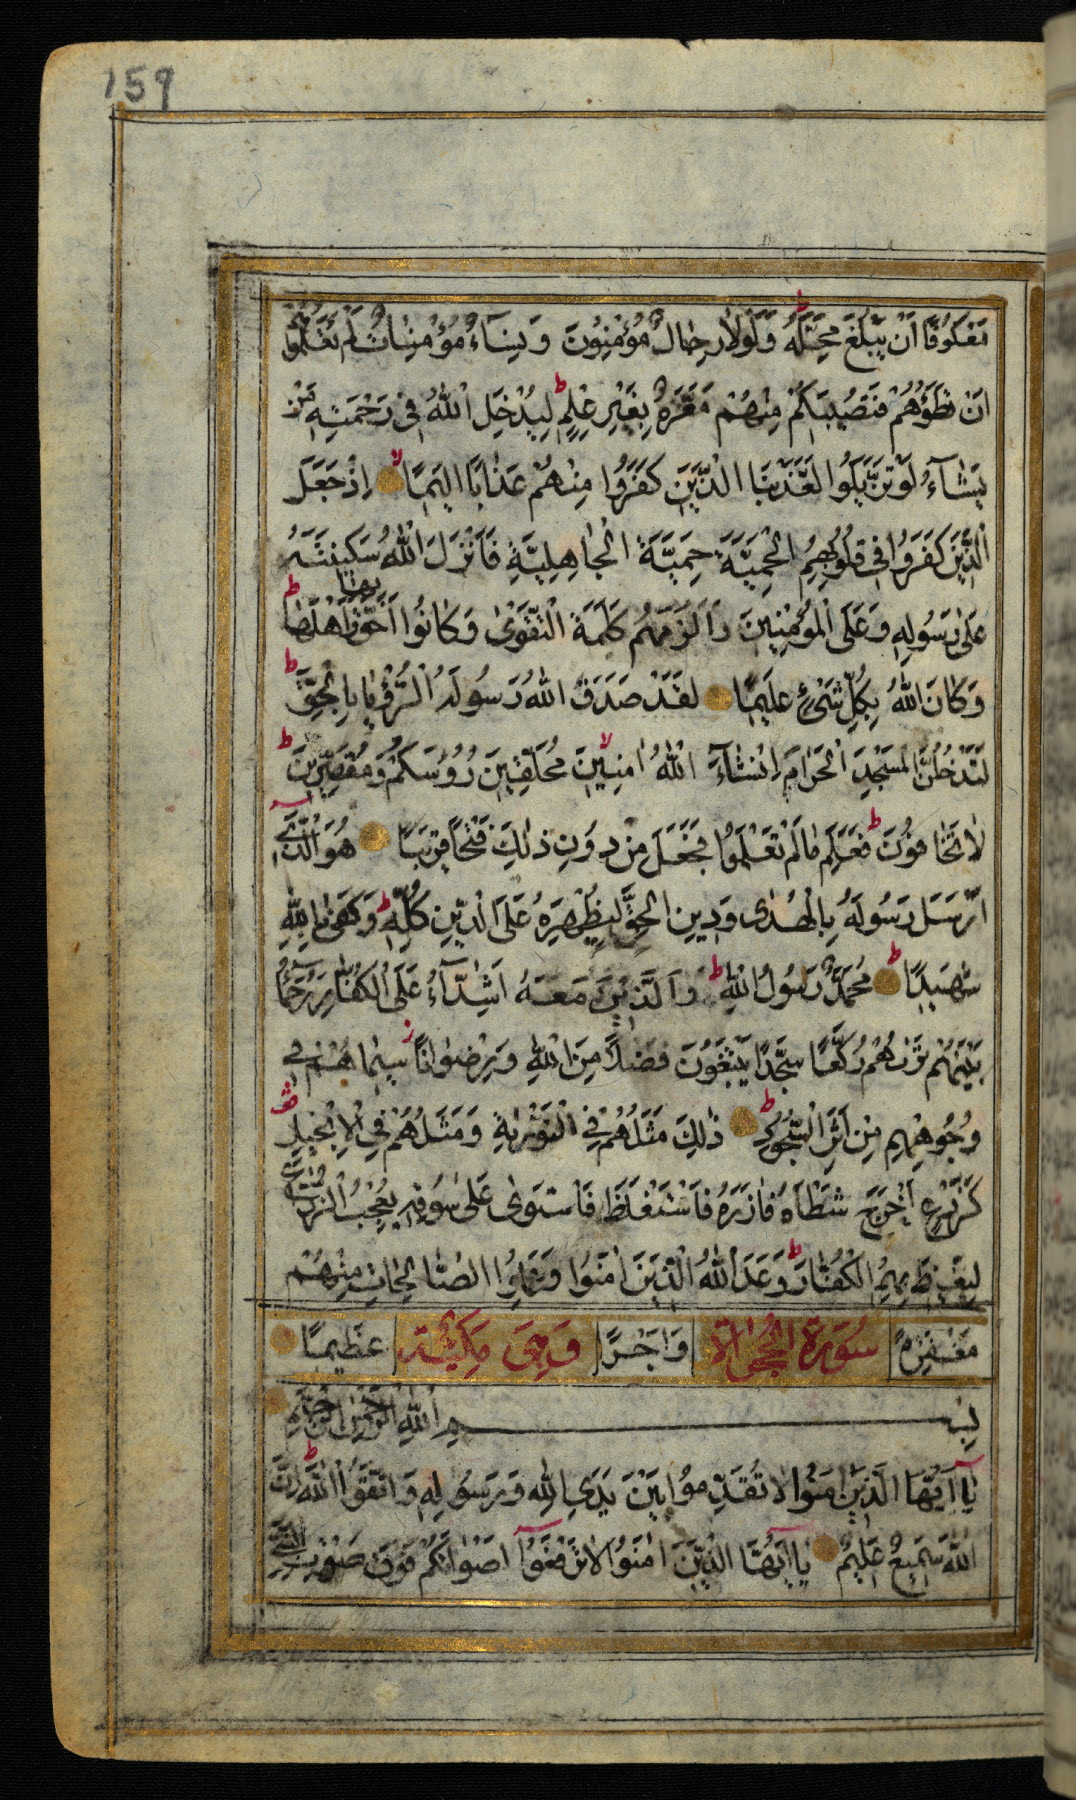 159
مَعْكُوفًا اَنْ يَبْلُغَ مَحِلَّهُ وَلَوْلَا رِجَالٌ مُؤْمِنُونَ وَنِسَاءٌ مُؤْمِنَاتٌ لَمْ تَعْلَمُوهُمْ
اَنْ تَطَؤُهُمْ فَتُصِيبَكُمْ مِنْهُمْ مَعَرَّةٌ بِغَيْرِ عِلْمٍ لِيُدْخِلَ اللّٰهُ فِي رَحْمَتِهِ مَنْ
يَشَآءُ لَوْ تَزَيَّلُوا لَعَذَّبْنَا الَّذِينَ كَفَرُوا مِنْهُمْ عَذَابًا اَلِيمًا اِذْ جَعَلَ
الَّذِينَ كَفَرُوا فِي قُلُوبِهِمُ الْحَمِيَّةَ حَمِيَّةَ الْجَاهِلِيَّةِ فَاَنْزَلَ اللّٰهُ سَكِينَتَهُ
عَلٰى رَسُولِهِ وَعَلَى الْمُؤْمِنِينَ وَاَلْزَمَهُمْ كَلِمَةَ التَّقْوٰى وَكَانُوا اَحَقَّ بِهَا وَاَهْلَهَا
وَكَانَ اللّٰهُ بِكُلِّ شَيْءٍ عَلِيمًا لَقَدْ صَدَقَ اللّٰهُ رَسُولَهُ الرُّؤْيَا بِالْحَقِّ
لَتَدْخُلُنَّ الْمَسْجِدَ الْحَرَامَ اِنْشَآءَ اللّٰهُ اٰمِنِينَ مُحَلِّقِينَ رُؤُسَكُمْ وَمُقَصِّرِينَ
لَا تَخَافُونَ فَعَلِمَ مَا لَمْ تَعْلَمُوا فَجَعَلَ مِنْ دُونِ ذٰلِكَ فَتْحًا قَرِيبًا هُوَ الَّذِي
اَرْسَلَ رَسُولَهُ بِالْهُدٰى وَدِينِ الْحَقِّ لِيُظْهِرَهُ عَلَى الدِّينِ كُلِّهِ وَكَفٰى بِاللّٰهِ
شَهِيدًا مُحَمَّدٌ رَسُولُ اللّٰهِ وَالَّذِينَ مَعَهُ اَشِدَّآءُ عَلَى الْكُفَّارِ رُحَمَآءُ
بَيْنَهُمْ تَرٰىهُمْ رُكَّعًا سُجَّدًا يَبْتَغُونَ فَضْلًا مِنَ اللّٰهِ وَرِضْوَانًا سِيمَاهُمْ فِي
وُجُوهِهِمْ مِنْ اَثَرِ السُّجُودِ ذٰلِكَ مَثَلُهُمْ فِي التَّوْرٰيةِ وَمَثَلُهُمْ فِي الْاِنْجِيلِ
كَزَرْعٍ اَخْرَجَ شَطْاَهُ فَاٰزَرَهُ فَاسْتَغْلَظَ فَاسْتَوٰى عَلٰى سُوقِهِ يُعْجِبُ الزُّرَّاعَ
لِيَغِيظَ بِهِمُ الْكُفَّارَ وَعَدَ اللّٰهُ الَّذِينَ اٰمَنُوا وَعَمِلُوا الصَّالِحَاتِ مِنْهُمْ
مَغْفِرَةً سُورَةُ الْحُجُرَاتِ وَاَجْرًا وَهِيَ مَكِّيَّة عَظِيمًا
بِسْمِ اللّٰهِ الرَّحْمٰنِ الرَّحِيمِ
يَآ اَيُّهَا الَّذِينَ اٰمَنُوا لَا تُقَدِّمُوا بَيْنَ يَدَيِ اللّٰهِ وَرَسُولِهِ وَاتَّقُوا اللّٰهَ اِنَّ
اللّٰهَ سَمِيعٌ عَلِيمٌ يَآ اَيُّهَا الَّذِينَ اٰمَنُوا لَا تَرْفَعُوآ اَصْوَاتَكُمْ فَوْقَ صَوْتِ النَّبِيِّ